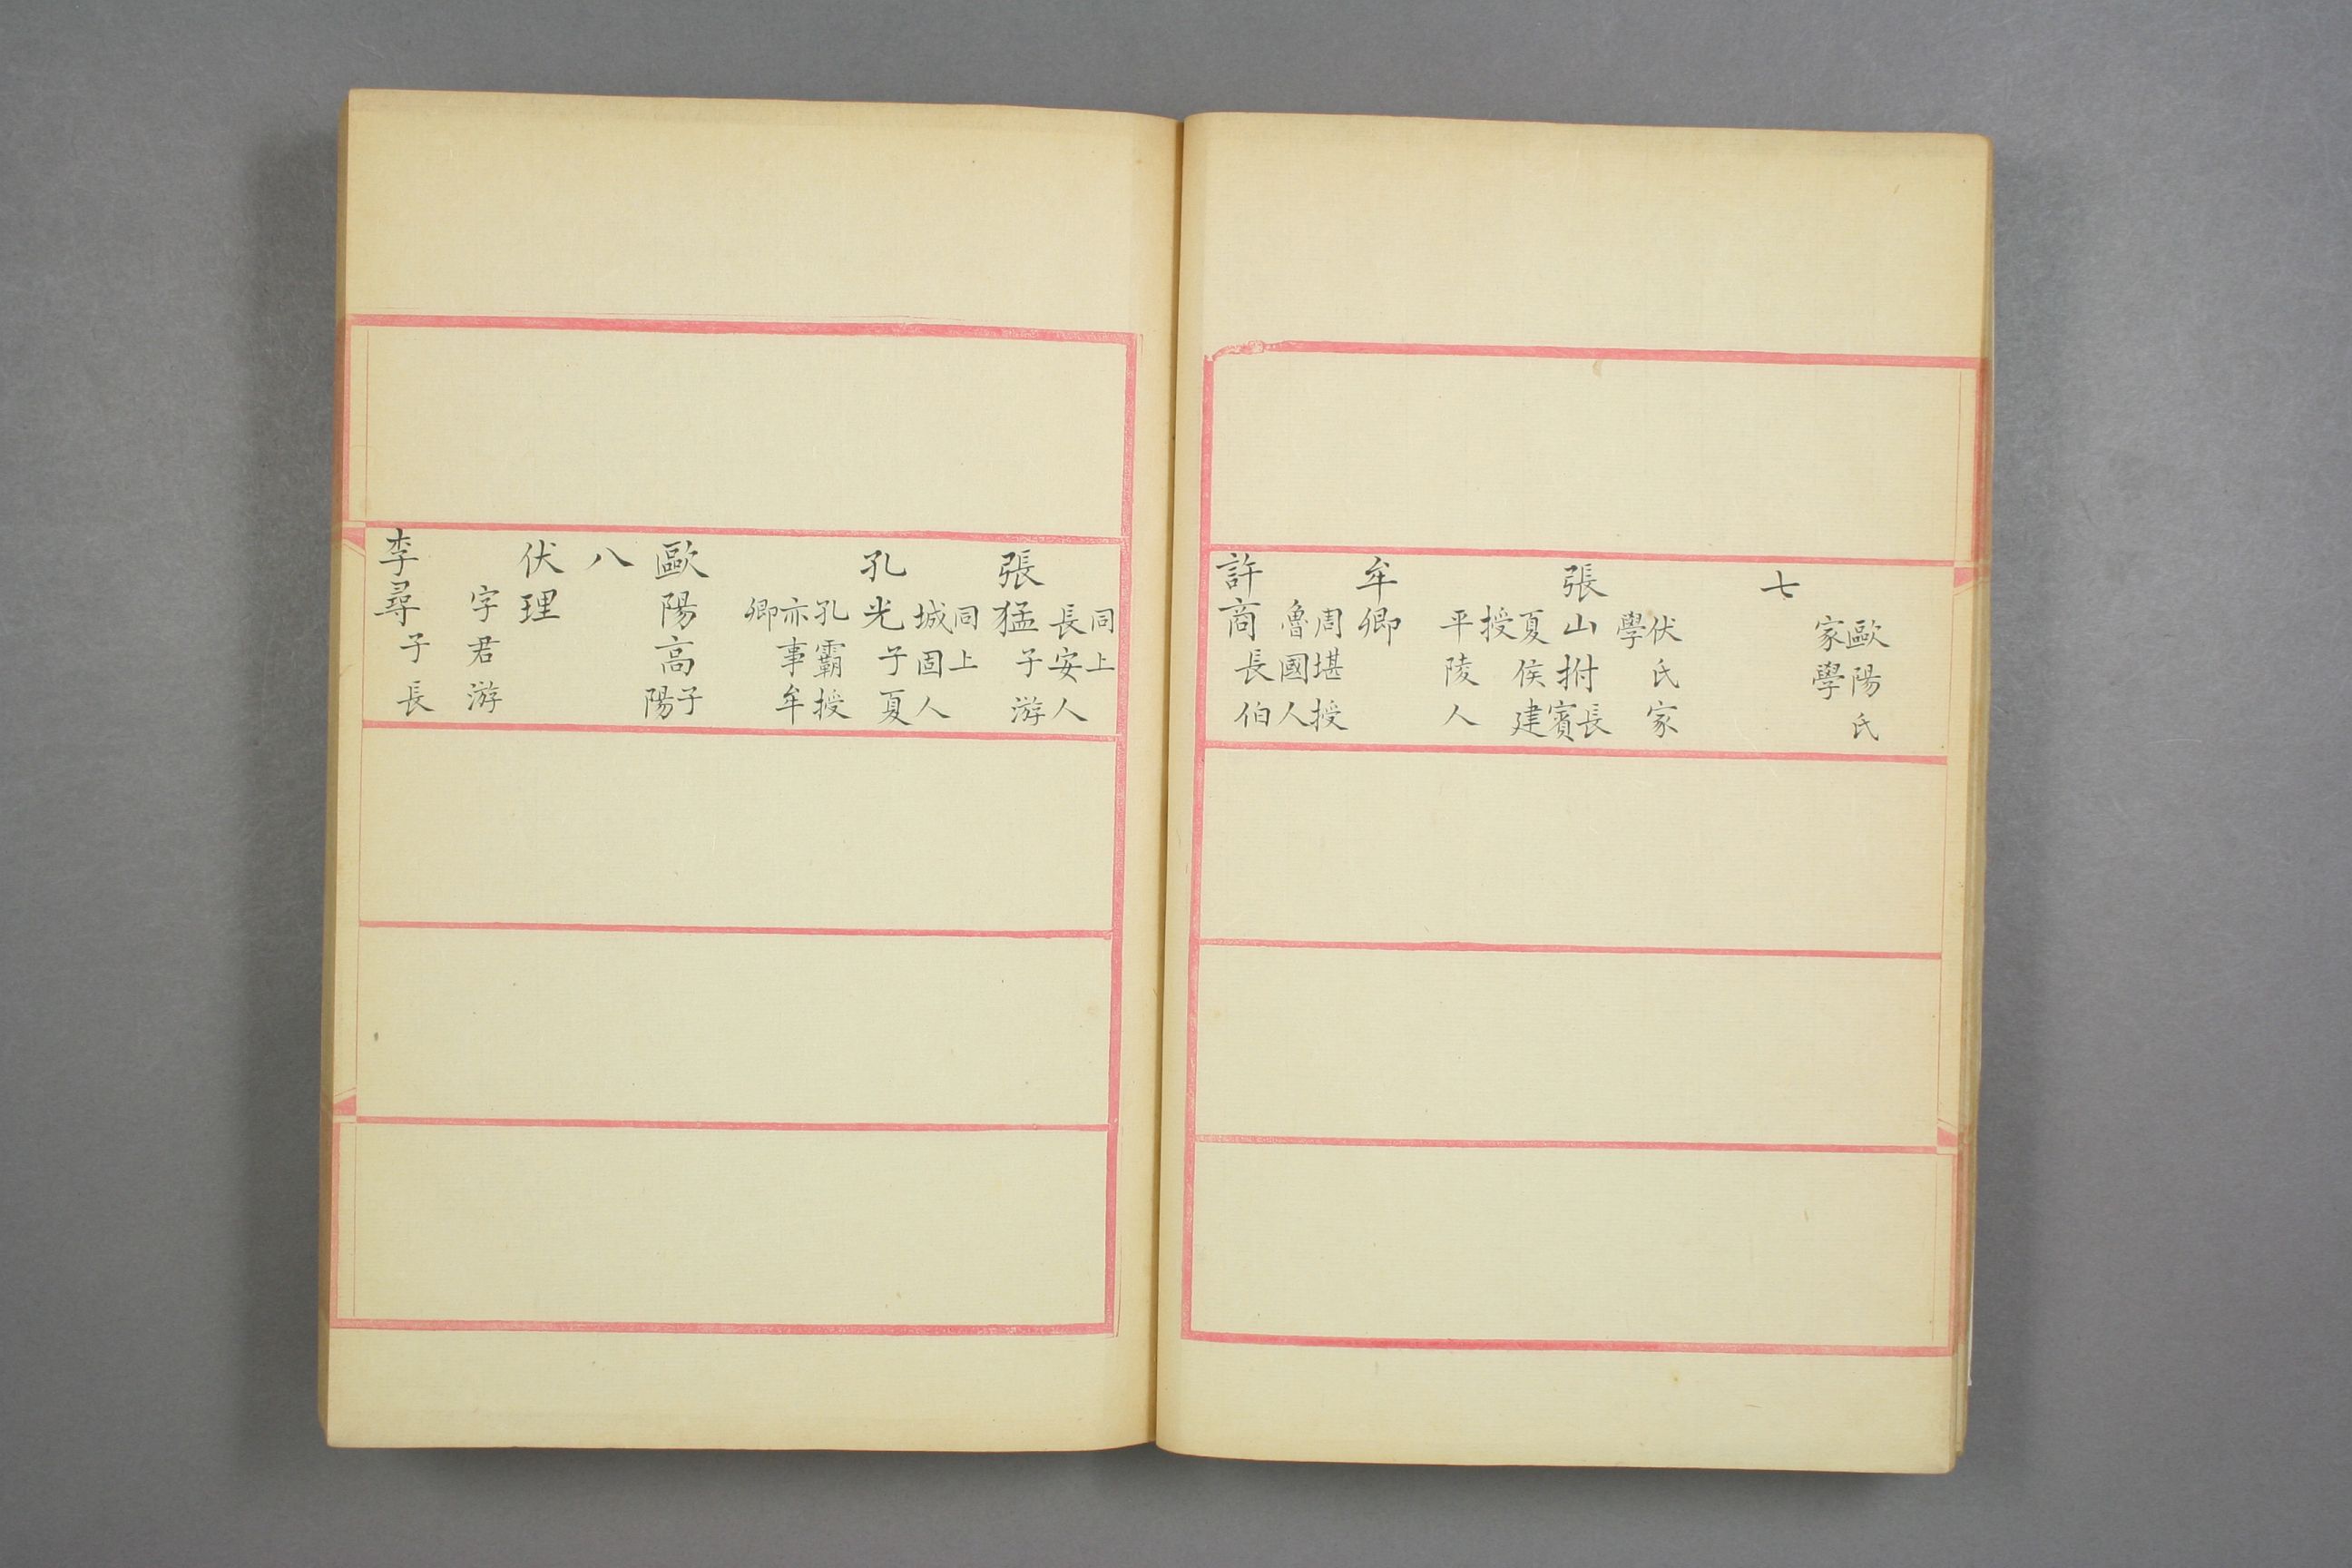 歐陽氏
家學
七
伏氏家
學
張山拊長
賓
夏侯建
授
平陵人
牟卿
周堪授
魯國人
許商長伯
同上
長安人
張猛子游
同上
城固人
孔光子夏
孔霸授
亦事牟
卿
歐陽高子
陽
八
伏理
字君游
李尋子長